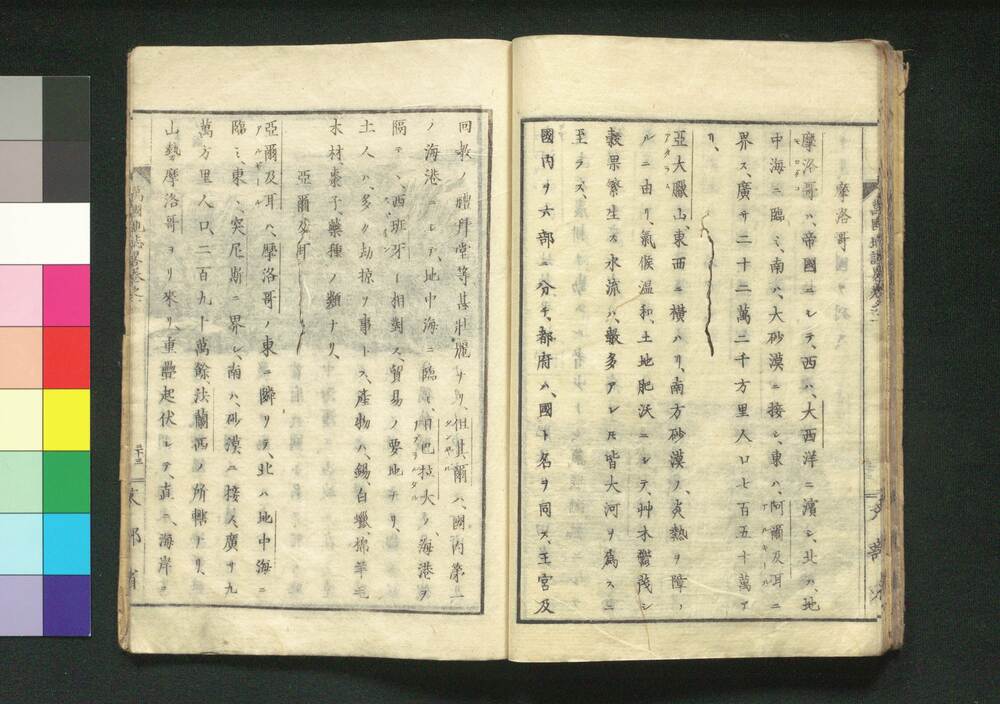 摩洛哥
摩洛哥ハ、帝國ニシテ、西ハ、大西洋ニ濱シ、北ハ、地
中海ニ臨ミ、南ハ、大砂漠ニ接シ、東ハ、阿爾及耳ニ
界ス、廣サ二十二萬二千方里人口七百五十萬ア
リ、
亞大臘山、東西ニ横ハリ、南方砂漠ノ、炎熱ヲ障フ
ルニ由リ、氣候温和、土地肥沃ニシテ、艸木鬱茂シ
穀果繁生ス、水流ハ、數多アレ𪜈皆大河ヲ爲スニ
至ラズ、
國内ヲ六部ニ分チ、都府ハ、國ト名ヲ同ス、王宮及
回教ノ禮拜堂等甚壯麗ナリ、但其爾ハ、國内第一
ノ海港ニシテ、地中海ニ臨ミ、日巴拉大ノ、海港ヲ
隔テヽ、西班牙ト相對ス、貿易ノ要地ナリ、
土人ハ、多ク劫掠ヲ事トス、產物ハ、錫、白蠟、綿羊毛
木材、棗子藥種ノ類ナリ、
亞爾及耳
亞爾及耳ハ、摩洛哥ノ東ニ隣リテ、北ハ地中海ニ
臨ミ、東ハ、突尼斯ニ界シ、南ハ、砂漠ニ接ス、廣サ九
萬方里人口、二百九十萬餘、法蘭西ノ所轄ナリ、
山勢摩洛哥ヨリ來リ、重疊起伏シテ、直ニ、海岸ニ
萬國地誌畧卷之二
二十三
文部省